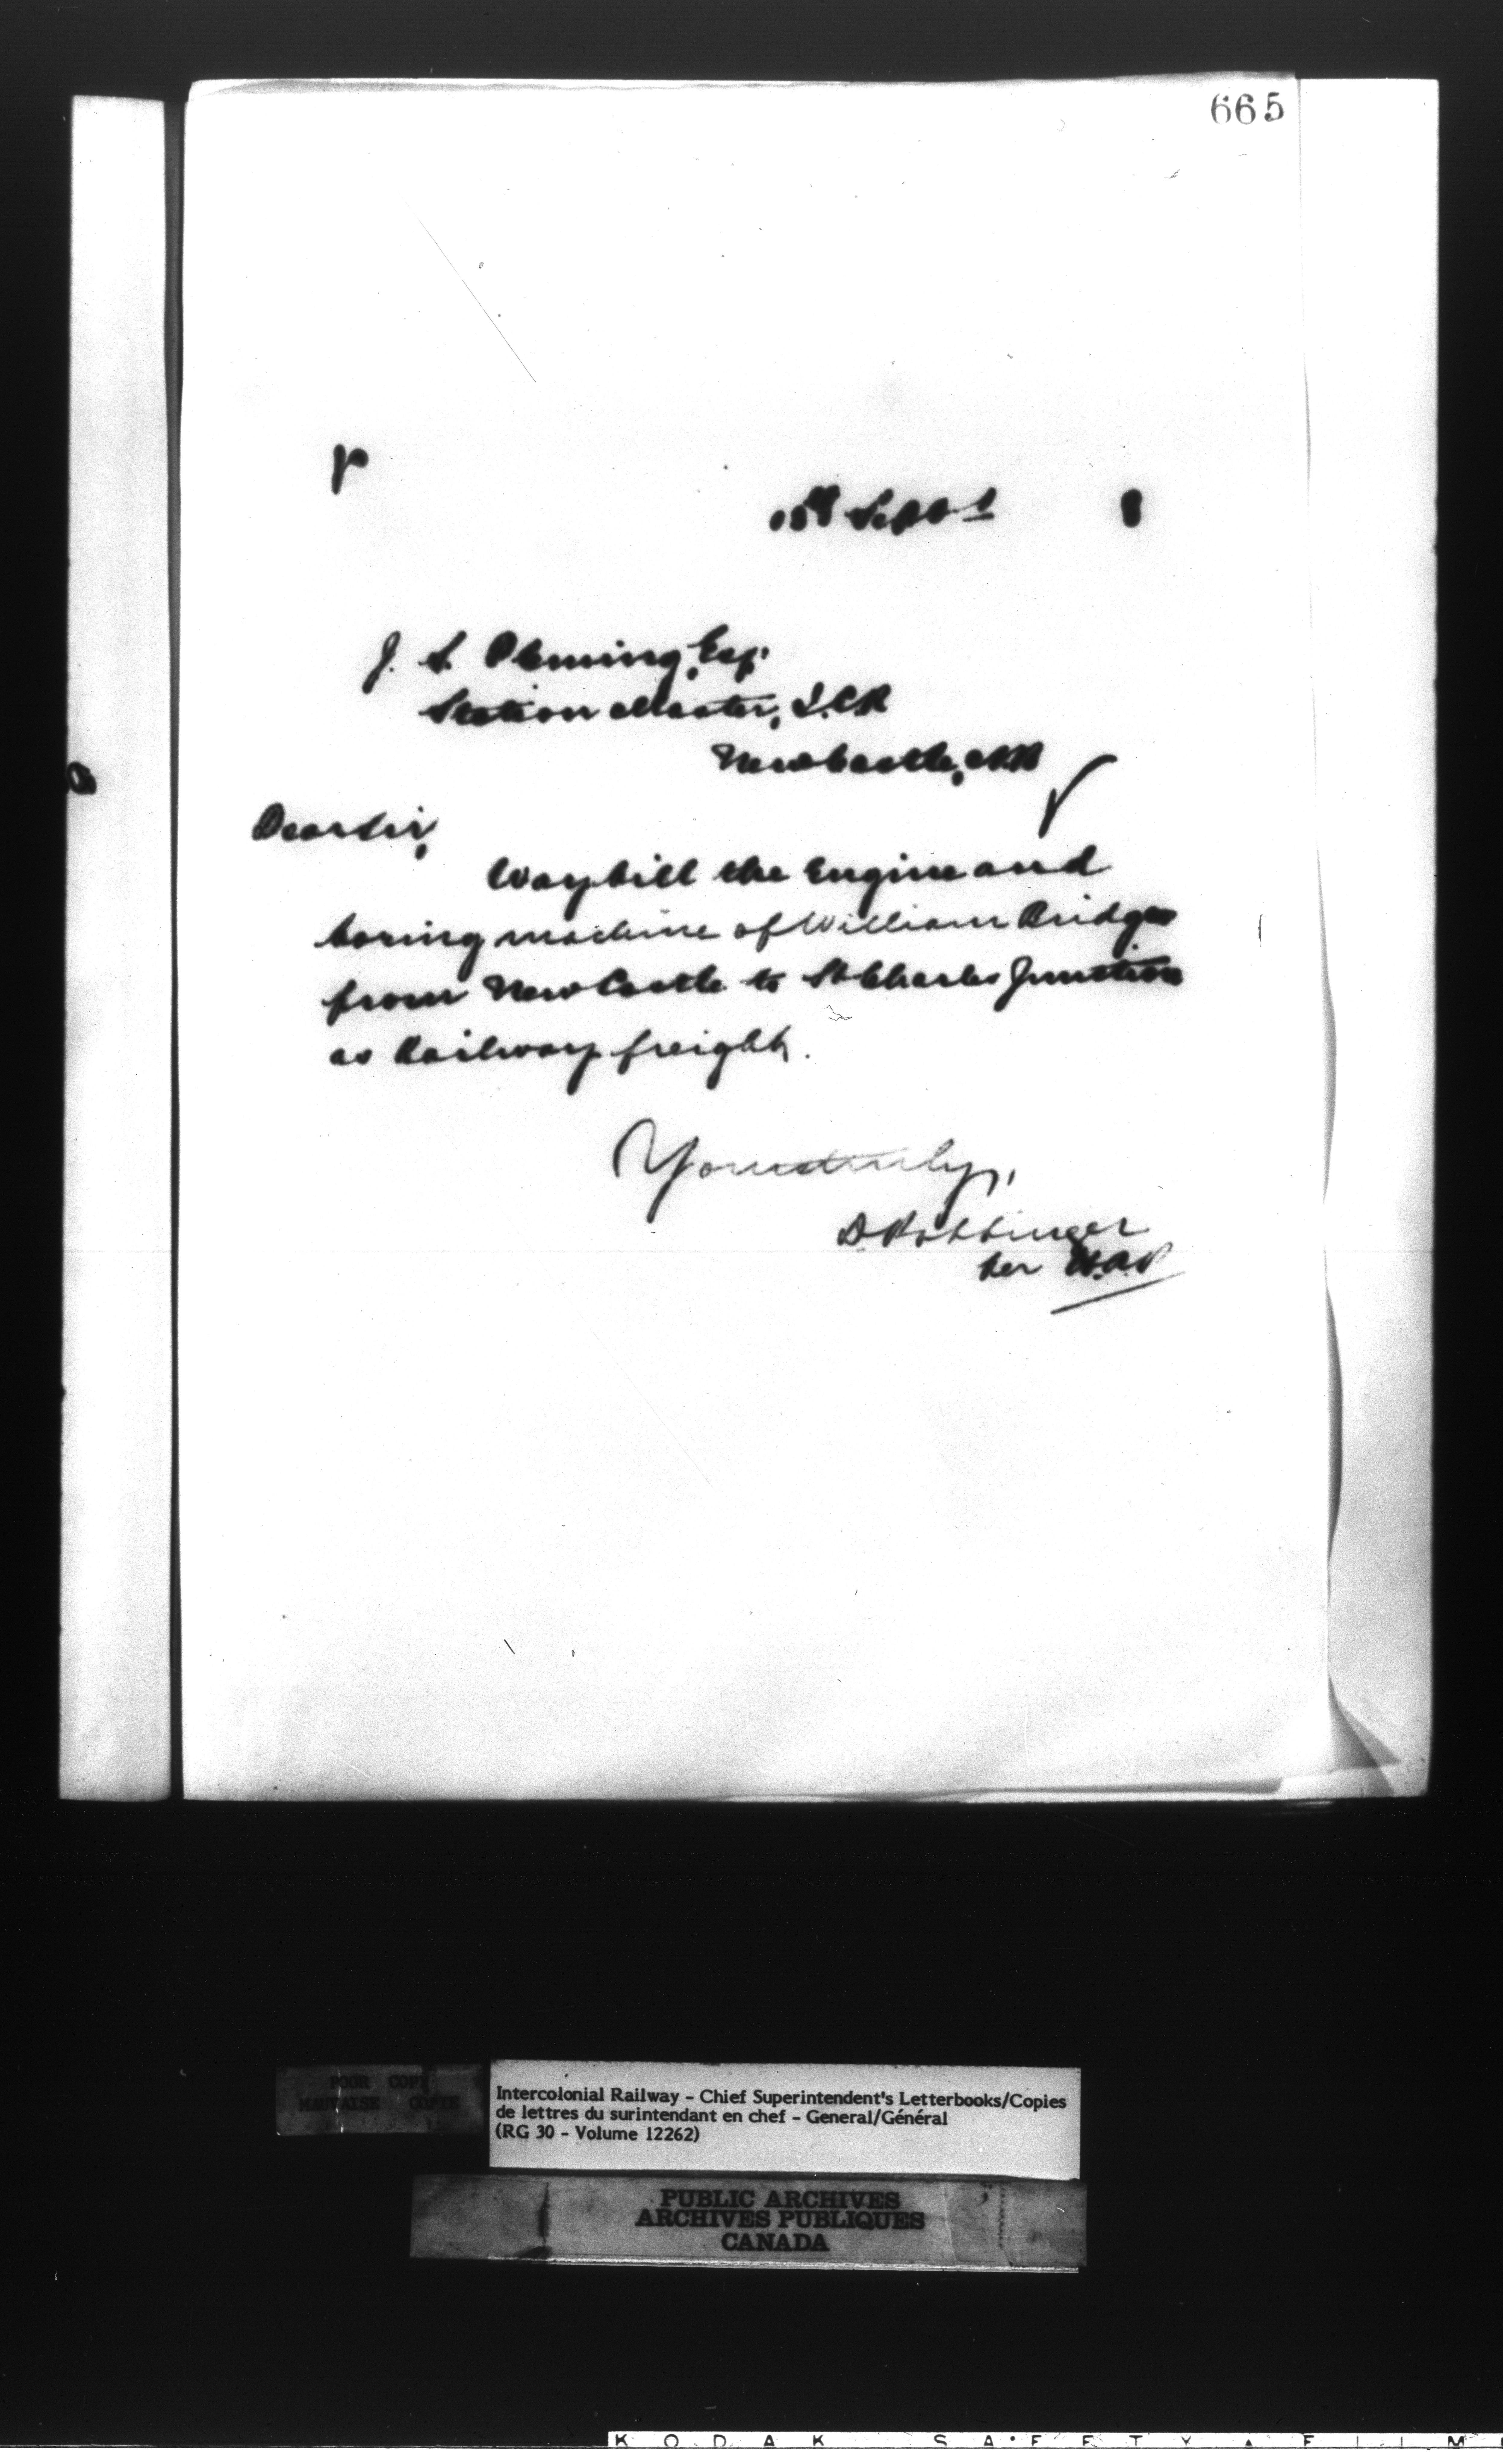 665
Sept
J. S. Fleming, Esq.
Station Master, I.C.R
Newcastle, N.B
Dear Sir,
Waybill the Engine and
boring machine of William Bridges
from New Castle to St Charles Junction
as Railway freight.
Yours truly,
D. Pottinger
per
POOR COPY
MAUVAISE COPIE
Intercolonial Railway - Chief Superintendent's Letterbooks/Copies
de lettres du surintendant en chef - General/Général
(RG 30 - Volume 12262)
PUBLIC ARCHIVES
ARCHIVES PUBLIQUES
CANADA
KODAK SAFETY FILM